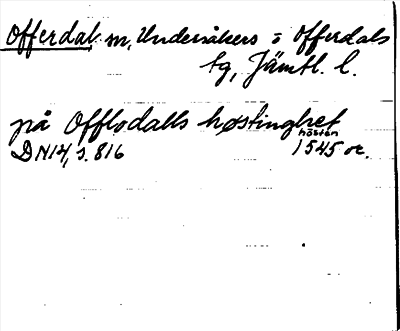 Offerdal m, Undersåkers o Offerdals
tg, Jämtl. l.
på Offlodalls høstinghet
hösten
DN14, s. 816 1545 or.